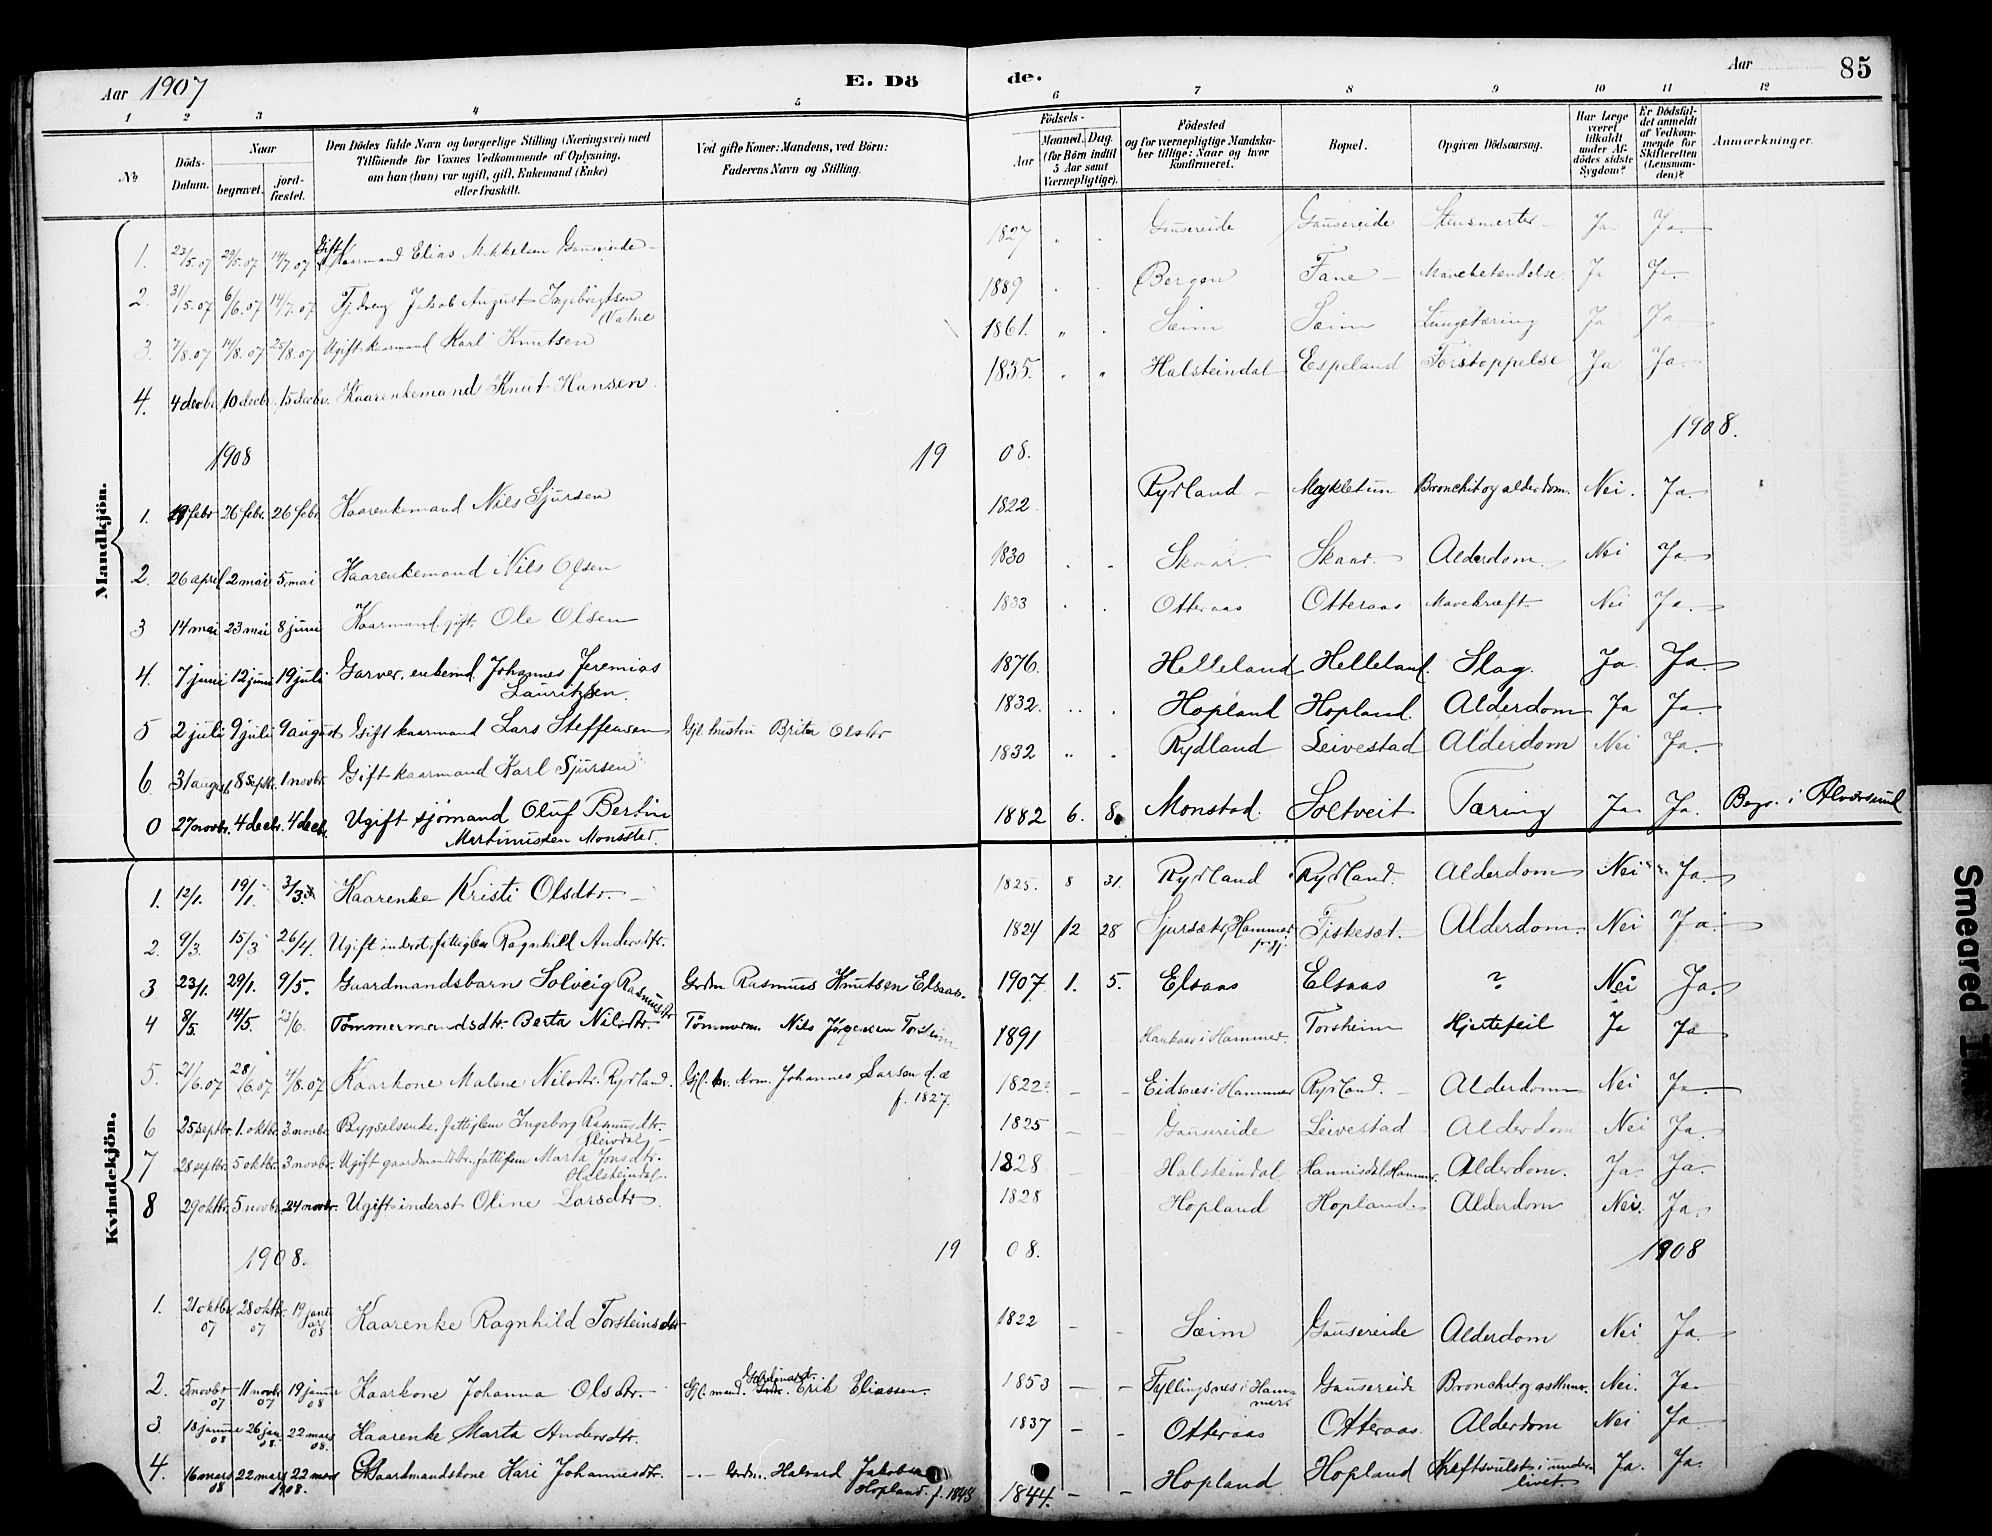 Aar 1907 E. Dö de. Aar 85
1 2 3 4 5 6 7 8 9 10 11 12
No
Döds-Datum.
Naar begravet. jordfæstet.
Den Dödes fulde Navn og borgerlige Stilling (Næringsvei) med
Tilföiende for Voxnes Vedkommende af Oplysning,
om han (hun) var ugift, gift, Enkemand (Enke)
eller fraskilt.
Ved gifte Koner: Mandens, ved Börn:
Faderens Navn og Stilling.
Födsels-
Aar Maaned. Dag.
(for Börn indtil
5 Aar samt
Værnepligtige).
Födested
og for værnepligtige Mandskaber tillige: Naar og hvor
konfirmeret.
Bopæl.
Opgiven Dödsaarsag.
Har Læge
været
tilkaldt
under Afdödes sidste
Sygdom?
Er Dödsfaldet anmeldt
af Vedkommende for
Skifteretten
(Lensmanden)?
Anmærkninger.
Mandkjön.
1. 23/5.07 29/5.07 14/7.07 Gift Kaarmand Elias Mikkelsen Gausereide 1827 Gausereide Gausereide Ja Ja
2. 31/5.07 6/6.07 14/7.07 Jakob August Ingebrigtsen 1889 Bergen Fane Mavebetændelse Ja Ja
3. 7/8.07 14/8.07 25/8.07 Ugift kaarmand Karl Knutsen 1861. Sæim Sæim Lungetæring Ja Ja
4. 4 decbr. 10 decbr. 15 decbr. Kaarenkemand Knut Hansen 1835. Halsteindal Espeland Forstoppelse Ja Ja
1908 19 08. 1908.
1. 19 febr 26 febr. 26 febr. Kaarenkemand Nils Sjursen 1822 Rydland Mykletun Bronchit og alderdom. Nei. Ja.
2. 26 april 2 mai 5 mai Kaarenkemand Nils Olsen 1830 Skaar Skaar Alderdom. Nei Ja
3 14 mai 23 mai 8 juni Kaarmand, gift. Ole Olsen 1833 Otteraas Otteraas Mavekræft. Nei Ja.
4. 7 juni 12 juni 19 juli Garver, enkemd. Johannes Jeremias
Lauritzsen. 1876. Helleland Helleland. Slag. Ja Ja
5 2 juli 9 juli 9 august Gift kaarmand Lars Steffensen Gjl. hustru Brita Olsdtr 1832. Hopland Hopland. Alderdom Ja Ja.
6. 31 august 8 septbr. 1 novbr. Gift kaarmand Karl Sjursen 1832 Rydland Leivestad Alderdom Nei Ja.
0 27 novbr. 4 decbr. 4 decbr. Ugift sjömand Oluf Bertin
Martinussen Monstad. 1882 6. 8. Monstad. Soltveit Tæring Ja. Ja. Begr. i Alversund
Kvindekjön.
1. 12/1. 19/1. 3/3. Kaarenke Kristi Olsdtr. 1825. 8 31. Rydland Rydland. Alderdom Nei Ja.
2. 9/3. 15/3 26/4. Ugift inderst, fattiglem Ragnhild Andersdtr. 1824 12 28 Sjursæter, Hammer
prgj. Fiskeset. Alderdom. Nei Ja.
3 23/1. 29/1. 9/5. Gaardmandsbarn Solveig Rasmusdtr Grdm Rasmus Knutsen Elsaas. 1907 1. 5. Elsaas Elsaas ? Nei Ja.
4 8/5. 14/5. 23/6. Tömmermandsdtr. Berta Nilsdtr. Tömmerm. Nils Jörgensen Torsheim 1891 Haukaas i Hammer. Torsheim Hjertefeil Ja Ja
5. 21/6.07 28/6.07. 4/8.07 Kaarkone Malene Nilsdtr. Rydland. Johannes Larsen d. æ
f. 1827. 1822 Eidsnes i Hammer Rydland. Alderdom Nei Ja.
6 25 septbr. 1. oktbr. 3 novbr. Bygselsenke, fattiglem Ingeborg Rasmusdtr. 1825 Gausereide Leivestad Alderdom Nei Ja.
7 28 septbr. 5 oktbr. 3 novbr. Ugift gaardmandsdtr., fattiglem Marta Jonsdtr.
Halsteindal. 1828 Halsteindal Hannisdal, Hammer. Alderdom. Ja. Ja.
8 29 oktbr. 5 novbr. 24 novbr. Ugift inderst Oline Larsdtr. 1828 Hopland Hopland. Alderdom Nei. Ja.
1908. 19 08. 1908
1. 21 oktbr.
07 28 oktbr.
07 19 januar
08 Kaarenke Ragnhild Torsteinsdtr 1822 Sæim Gausereide Alderdom Nei Ja.
2. 5 novbr
07 11 novbr
07 19 januar
08 Kaarkone Johanna Olsdtr. Gjl. mand. Erik Eliassen. 1853 Fyllingsnes i Hammer Gausereide Bronchit og asthma. Nei. Ja.
3 18 januar
08 26 jan
08. 22 mars
08. Kaarenke Marta Andersdtr. 1837 Otteraas Otteraas. Alderdom Nei Ja.
4. 16 mars
08 22 mars 22 mars
1908. Gaardmandskone Kari Johannesdtr. Grdm. Halvard Jakobsen
Hopland. f. 1843 1844. Hopland. Hopland Kræftsvulst i underlivet. Ja. Ja.
Smeared